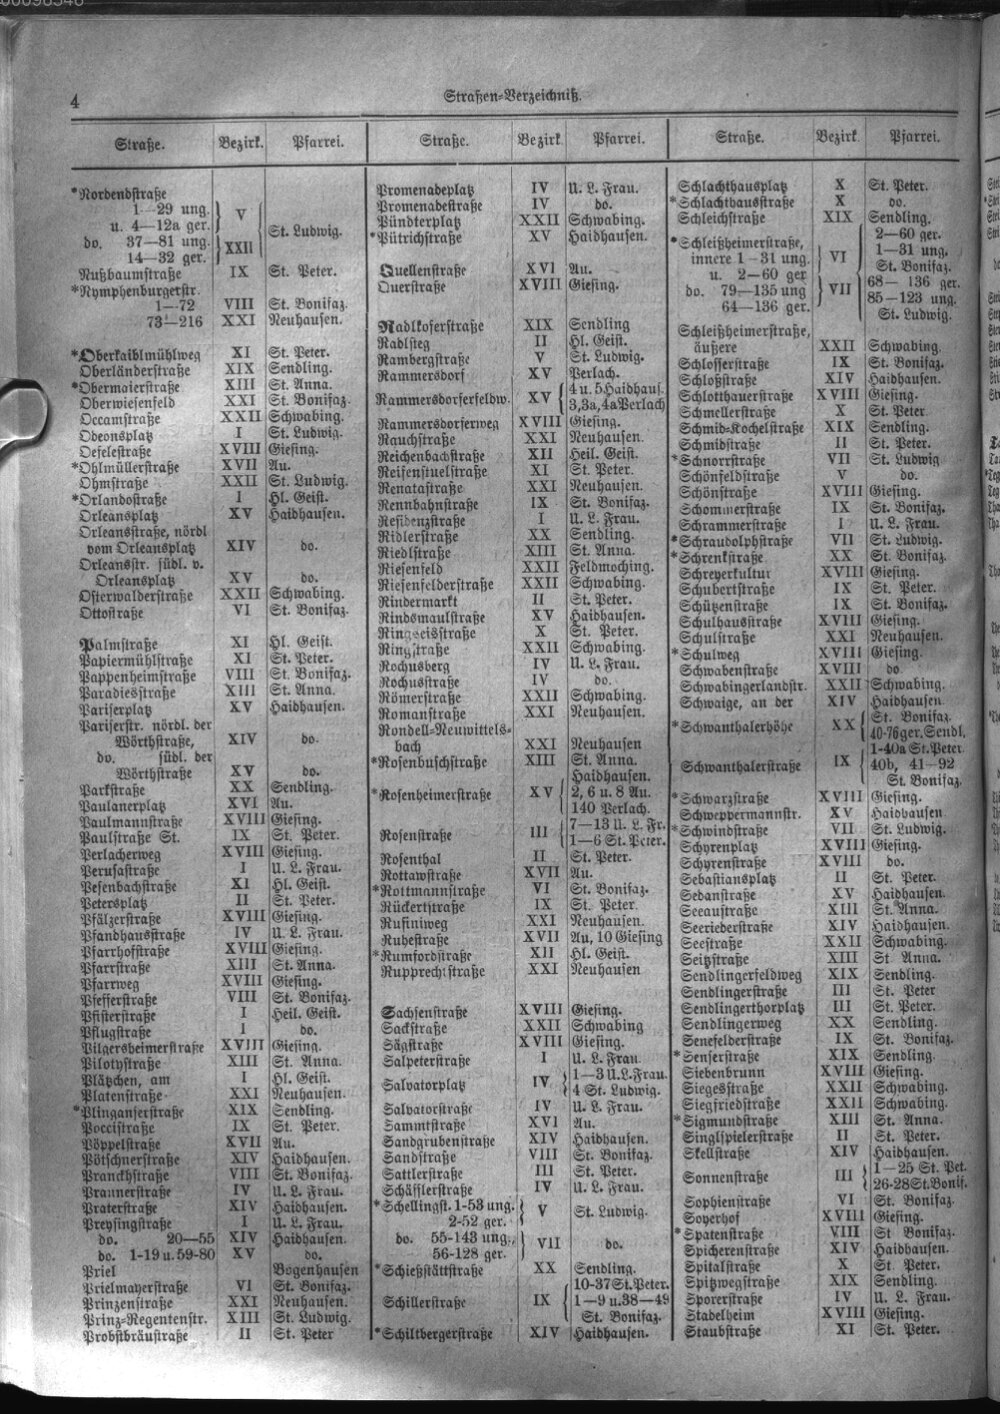 00098346
4
Straßen-Verzeichniß.
Straße. Bezirk. Pfarrei.
*Nordendstraße
1—29 ung.
u. 4—12a ger. V
St. Ludwig.
do. 37—81 ung.
14—32 ger. XXII
Nußbaumstraße IX St. Peter.
*Nymphenburgerstr.
1—72 VIII St. Bonifaz.
73—216 XXI Neuhausen.
*Oberkaiblmühlweg XI St. Peter.
Oberländerstraße XIX Sendling.
*Obermaierstraße XIII St. Anna.
Oberwiesenfeld XXI St. Bonifaz.
Occamstraße XXII Schwabing.
Odeonsplatz I St. Ludwig.
Oefelestraße XVIII Giesing.
*Ohlmüllerstraße XVII Au.
Ohmstraße XXII St. Ludwig.
*Orlandostraße I Hl. Geist.
Orleansplatz XV Haidhausen.
Orleansstraße, nördl
vom Orleansplatz XIV do.
Orleansstr. südl. v.
Orleansplatz XV do.
Osterwalderstraße XXII Schwabing.
Ottostraße VI St. Bonifaz.
Palmstraße XI Hl. Geist.
Papiermühlstraße XI St. Peter.
Pappenheimstraße VIII St. Bonifaz.
Paradiesstraße XIII St. Anna.
Pariserplatz XV Haidhausen.
Pariserstr. nördl. der
Wörthstraße, XIV do.
do. südl. der
Wörthstraße XV do.
Parkstraße XX Sendling.
Paulanerplatz XVI Au.
Paulmannstraße XVIII Giesing.
Paulstraße St. IX St. Peter.
Perlacherweg XVIII Giesing.
Perusastraße I U. L. Frau.
Pesenbachstraße XI Hl. Geist.
Petersplatz II St. Peter.
Pfälzerstraße XVIII Giesing.
Pfandhausstraße IV U. L. Frau.
Pfarrhofstraße XVIII Giesing.
Pfarrstraße XIII St. Anna.
Pfarrweg XVIII Giesing.
Pfefferstraße VIII St. Bonifaz.
Pfisterstraße I Heil. Geist.
Pflugstraße I do.
Pilgersheimerstraße XVIII Giesing.
Pilotystraße XIII St. Anna.
Plätzchen, am I Hl. Geist.
Platenstraße XXI Neuhausen.
*Plinganserstraße XIX Sendling.
Poccistraße IX St. Peter.
Pöppelstraße XVII Au.
Pötschnerstraße XIV Haidhausen.
Pranckhstraße VIII St. Bonifaz.
Prannerstraße IV U. L. Frau.
Praterstraße XIV Haidhausen.
Preysingstraße I U. L. Frau.
do. 20—55 XIV Haidhausen.
do. 1-19 u. 59-80 XV do.
Priel Bogenhausen
Prielmayerstraße VI St. Bonifaz.
Prinzenstraße XXI Neuhausen.
Prinz-Regentenstr. XIII St. Ludwig.
Probstbräustraße II St. Peter
Straße. Bezirk. Pfarrei.
Promenadeplatz IV U. L. Frau.
Promenadestraße IV do.
Pündterplatz XXII Schwabing.
*Pütrichstraße XV Haidhausen.
Quellenstraße XVI Au.
Querstraße XVIII Giesing.
Radlkoferstraße XIX Sendling
Radlsteg II Hl. Geist.
Rambergstraße V St. Ludwig.
Rammersdorf XV Perlach.
Rammersdorferfeldw. XV 4 u. 5 Haidhaus.
3,3a,4a Perlach
Rammersdorferweg XVIII Giesing.
Rauchstraße XXI Neuhausen.
Reichenbachstraße XII Heil. Geist.
Reifenstuelstraße XI St. Peter.
Renatastraße XXI Neuhausen.
Rennbahnstraße IX St. Bonifaz.
Residenzstraße I U. L. Frau.
Ridlerstraße XX Sendling.
Riedlstraße XIII St. Anna.
Riesenfeld XXII Feldmoching.
Riesenfelderstraße XXII Schwabing.
Rindermarkt II St. Peter.
Rindsmaulstraße XV Haidhausen.
Ringseisstraße X St. Peter.
Ringstraße XXII Schwabing.
Rochusberg IV U. L. Frau.
Rochusstraße IV do.
Römerstraße XXII Schwabing.
Romanstraße XXI Neuhausen.
Rondell-Neuwittels-
bach XXI Neuhausen
*Rosenbuschstraße XIII St. Anna.
Haidhausen.
*Rosenheimerstraße XV 2, 6 u. 8 Au.
140 Perlach.
Rosenstraße III 7—13 U. L. Fr.
1—6 St. Peter.
Rosenthal II St. Peter.
Rottawstraße XVII Au.
*Rottmannstraße VI St. Bonifaz.
Rückertstraße IX St. Peter.
Rufiniweg XXI Neuhausen.
Ruhestraße XVII Au, 10 Giesing
*Rumfordstraße XII Hl. Geist.
Rupprechtstraße XXI Neuhausen
Sachsenstraße XVIII Giesing.
Sackstraße XXII Schwabing
Sägstraße XVIII Giesing.
Salpeterstraße I U. L. Frau
Salvatorplatz IV 1—3 U.L.Frau.
4 St. Ludwig.
Salvatorstraße IV U. L. Frau.
Sammtstraße XVI Au.
Sandgrubenstraße XIV Haidhausen.
Sandstraße VIII St. Bonifaz.
Sattlerstraße III St. Peter.
Schäfflerstraße IV U. L. Frau.
*Schellingst. 1-53 ung.
2-52 ger. V St. Ludwig.
do. 55-143 ung.,
56-128 ger. VII do.
*Schießstättstraße XX Sendling.
10-37 St. Peter.
Schillerstraße IX 1—9 u. 38—49
St. Bonifaz.
*Schiltbergerstraße XIV Haidhausen.
Straße. Bezirk. Pfarrei.
Schlachthausplatz X St. Peter.
*Schlachthausstraße X do.
Schleichstraße XIX Sendling.
*Schleißheimerstraße, 2—60 ger.
innere 1—31 ung. VI 1—31 ung.
u. 2—60 ger St. Bonifaz.
do. 79—135 ung VII 68—136 ger.
64—136 ger. 85—123 ung.
St. Ludwig.
Schleißheimerstraße,
äußere XXII Schwabing.
Schlosserstraße IX St. Bonifaz.
Schloßstraße XIV Haidhausen.
Schlotthauerstraße XVIII Giesing.
Schmellerstraße X St. Peter
Schmid-Kochelstraße XIX Sendling.
Schmidstraße II St. Peter.
*Schnorrstraße VII St. Ludwig
Schönfeldstraße V do.
Schönstraße XVIII Giesing.
Schommerstraße IX St. Bonifaz.
Schrammerstraße I U. L. Frau.
*Schraudolphstraße VII St. Ludwig.
*Schrenkstraße XX St. Bonifaz.
Schreyerkultur XVIII Giesing.
Schubertstraße IX St. Peter.
Schützenstraße IX St. Bonifaz.
Schulhausstraße XVIII Giesing.
Schulstraße XXI Neuhausen.
*Schulweg XVIII Giesing.
Schwabenstraße XVIII do
Schwabingerlandstr. XXII Schwabing.
Schwaige, an der XIV Haidhausen
*Schwanthalerhöhe XX St. Bonifaz
40-76 ger. Sendl.
1-40a St. Peter.
Schwanthalerstraße IX 40b, 41—92
St. Bonifaz.
*Schwarzstraße XVIII Giesing.
Schweppermannstr. XV Haidhausen
*Schwindstraße VII St. Ludwig.
Schyrenplatz XVIII Giesing.
Schyrenstraße XVIII do.
Sebastiansplatz II St. Peter.
Sedanstraße XV Haidhausen.
Seeaustraße XIII St. Anna.
Seeriederstraße XIV Haidhausen.
Seestraße XXII Schwabing.
Seitzstraße XIII St Anna.
Sendlingerfeldweg XIX Sendling.
Sendlingerstraße III St. Peter
Sendlingerthorplatz III St. Peter.
Sendlingerweg XX Sendling.
Senefelderstraße IX St. Bonifaz.
*Senserstraße XIX Sendling.
Siebenbrunn XVIII Giesing.
Siegesstraße XXII Schwabing.
Siegfriedstraße XXII Schwabing.
*Sigmundstraße XIII St. Anna.
Singlspielerstraße II St. Peter.
Skellstraße XIV Haidhausen.
Sonnenstraße III 1—25 St. Pet.
26-28 St. Bonif.
Sophienstraße VI St. Bonifaz.
Soyerhof XVIII Giesing.
*Spatenstraße VIII St Bonifaz.
Spicherenstraße XIV Haidhausen.
Spitalstraße X St. Peter.
Spitzwegstraße XIX Sendling.
Sporerstraße IV U. L. Frau.
Stadelheim XVIII Giesing.
Staubstraße XI St. Peter.